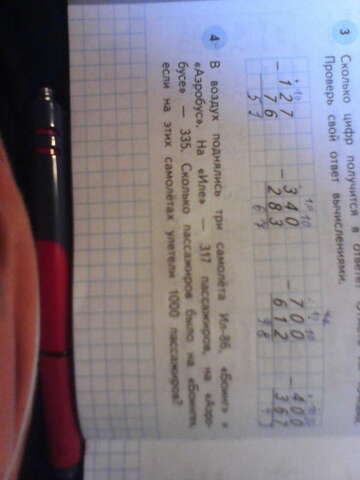 3 Сколько цифр получится в ответе?
Проверь свой ответ вычислениями.
− 127 − 340 − 700 − 400
76 283 612 367
4 В воздух поднялись три самолёта Ил-86, «Боинг» и
«Аэробус». На «Иле» — 317 пассажиров, на «Аэро-
бусе» — 335. Сколько пассажиров было на «Боинге»,
если на этих самолётах улетели 1000 пассажиров?